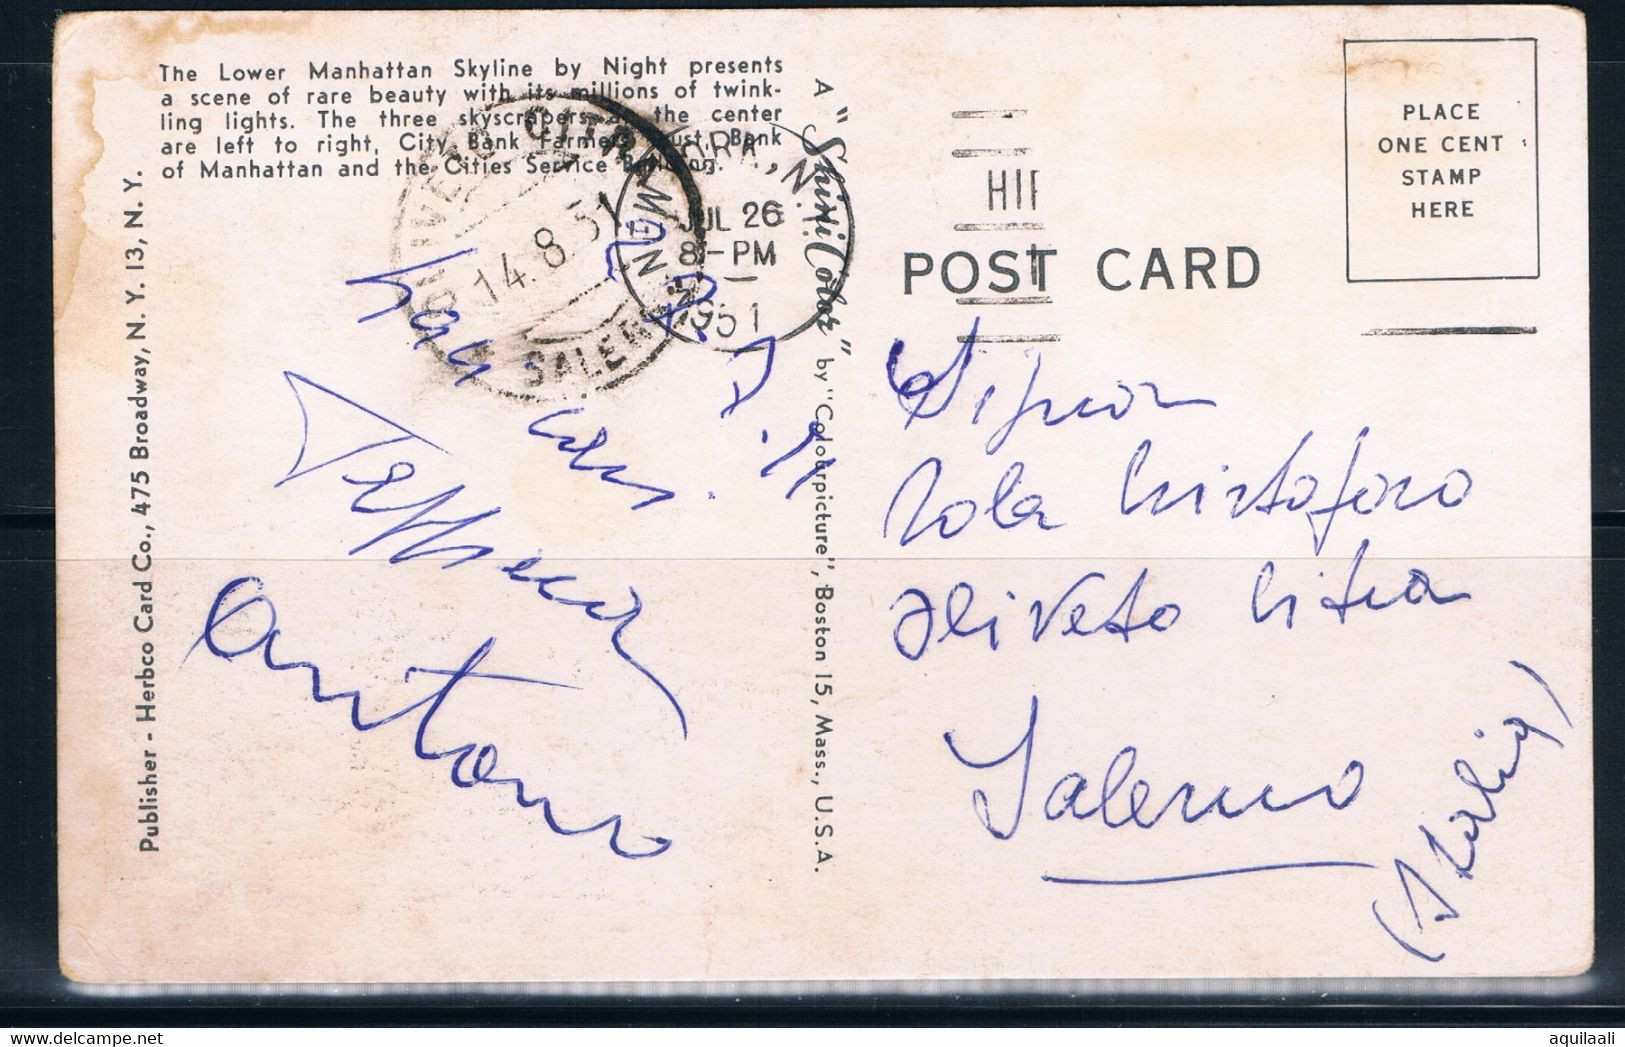 The Lower Manhattan Skyline by Night presents
a scene of rare beauty with its millions of twink-
ling lights. The three skyscrapers at the center
are left to right, City Bank Farmers Trust, Bank
of Manhattan and the Cities Service Building.
OLIVETO CITRA
14.8.51
SALERNO
N.Y.
JUL 26
8-PM
1951
Antonio
Publisher - Herbco Card Co., 475 Broadway, N. Y. 13, N. Y.
A "Shini Color" by "Colourpicture", Boston 15, Mass., U.S.A.
PLACE
ONE CENT
STAMP
HERE
POST CARD
Signor
Cristoforo
Oliveto Citra
Salerno
(Italia)
aquilaali